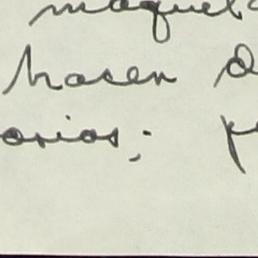 maqueta
hacen d
orios; p